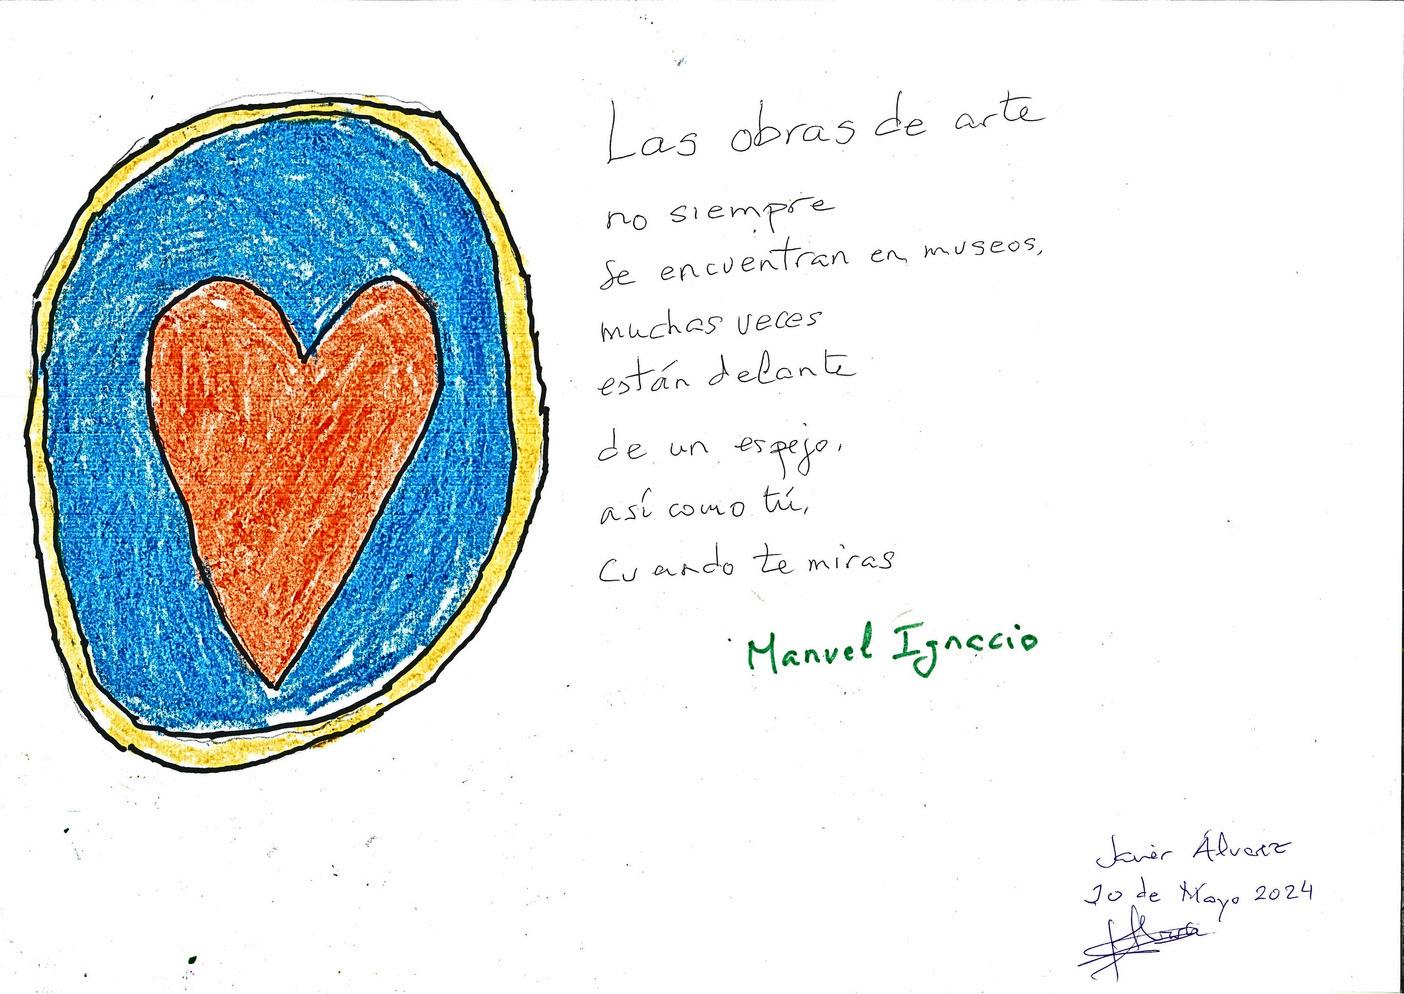 Las obras de arte
no siempre
se encuentran en museos,
muchas veces
están delante
de un espejo,
así como tú,
cuando te miras
Manuel Ignacio
Javier Álvarez
20 de Mayo 2024